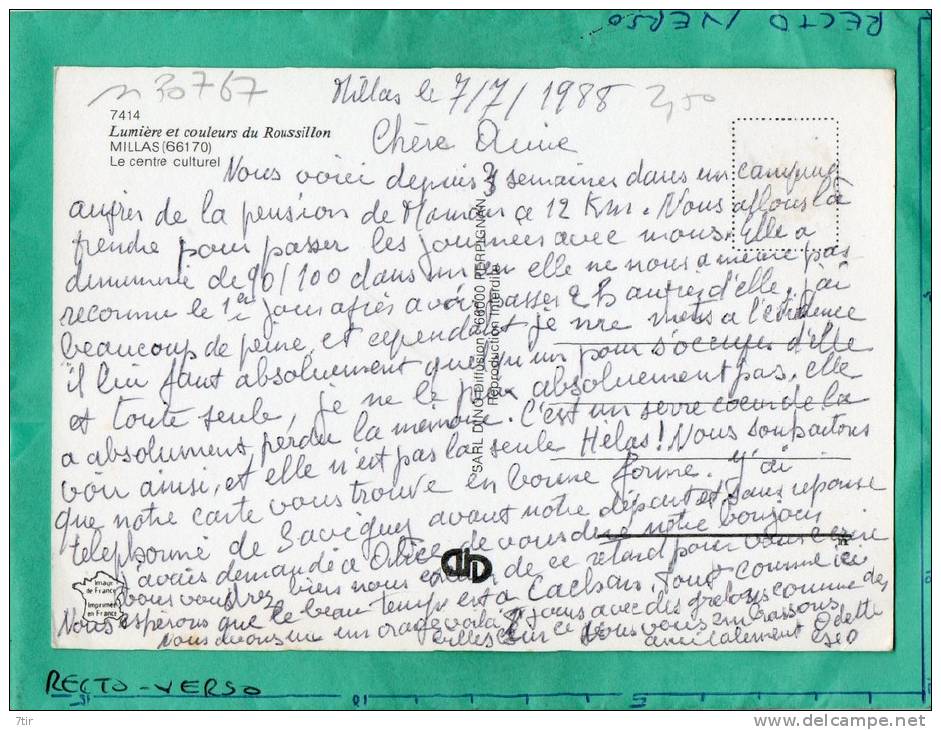 RECTO / VERSO
n 30767
Millas le 7/7/1988
2,50
7414
Lumière et couleurs du Roussillon
MILLAS (66170)
Le centre culturel
Chère
Nous voici depuis 3 semaines dans un camping
auprès de la pension de Maman à 12 Km. Nous allons la
prendre pour passer les journées avec nous. Elle a
diminuée de 90/100 dans un an elle ne nous a même pas
reconnu le 1er jour après avoir passer 2 h auprès d'elle, j'ai
beaucoup de peine, et cependant je me mets a l'évidence
il lui faut absolument quelqu'un pour s'occuper d'elle
et toute seule, je ne le peux absolument pas, elle
a absolument perdu la mémoire. C'est un serre coeur de la
voir ainsi, et elle n'est pas la seule Hélas! Nous souhaitons
que notre carte vous trouve en bonne forme. J'ai
telephonné de Savigny avant notre départ et sans reponse
j'avais demandé a de vous dire notre bonjour
vous voudrez bien nous de ce retard pour vous écrire
Nous espérons que le beau temps est a Cachan, tout comme ici
nous avons eu un orage voila 8 jours avec des grelons comme des
billes sur ce Nous vous embrassons
amicalement Odette
Geo
SARL DINO Diffusion 66000 PERPIGNAN
Reproduction Interdite
Image
de France
Imprimée
en France
RECTO - VERSO
7tir
www.delcampe.net